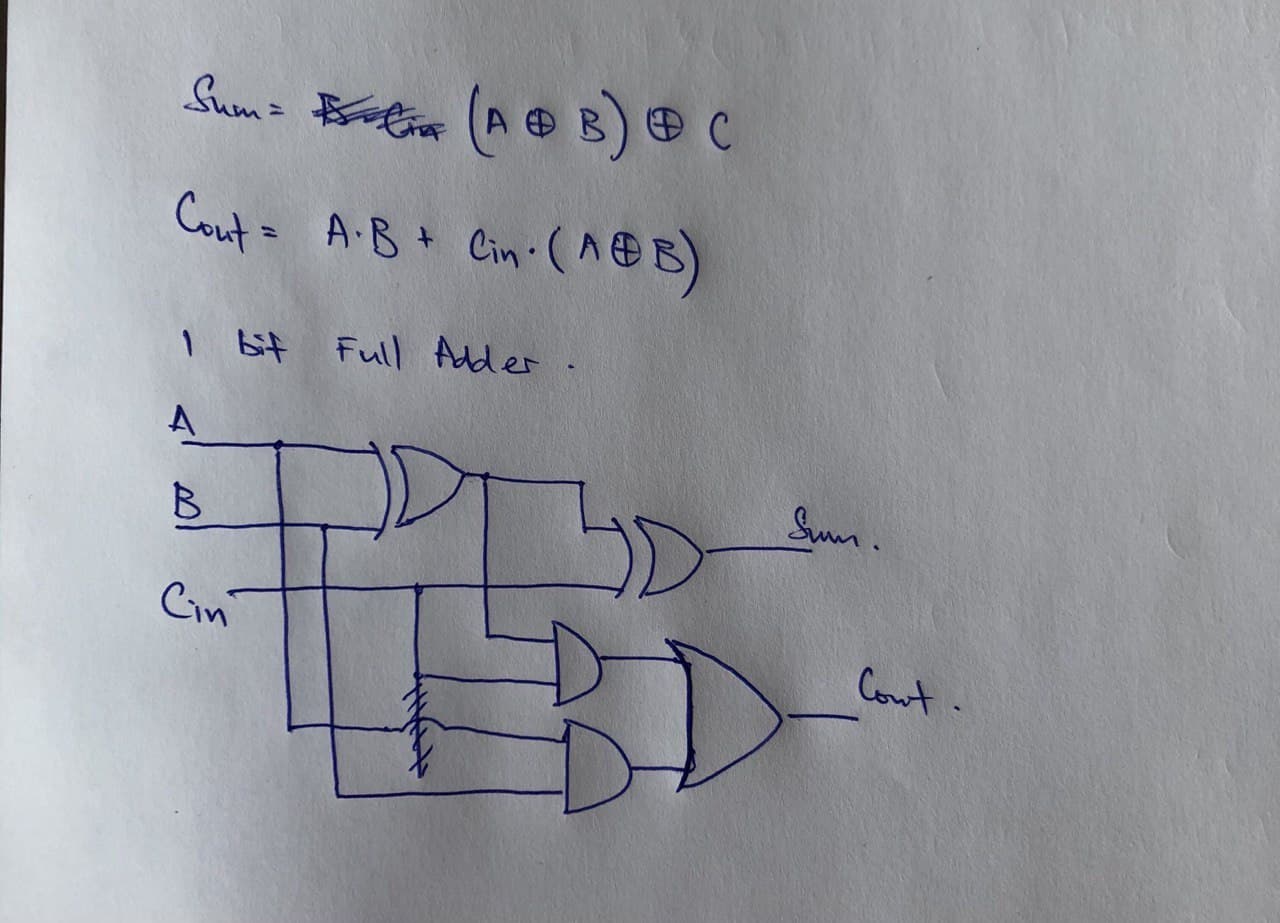 Sum = (A ⊕ B) ⊕ C
Cout = A·B + Cin·(A⊕B)
1 bit Full Adder.
A
B
Sum.
Cin
Cout.